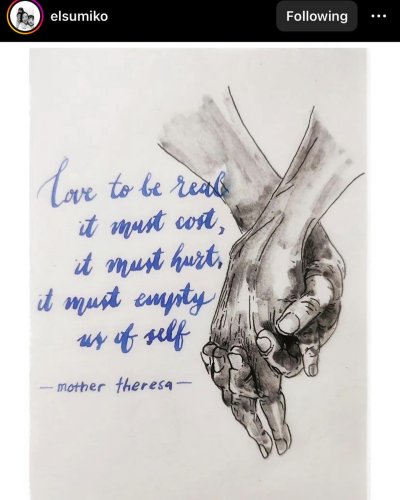 elsumiko
Following
love to be real,
it must cost,
it must hurt,
it must empty
us of self
— mother theresa —